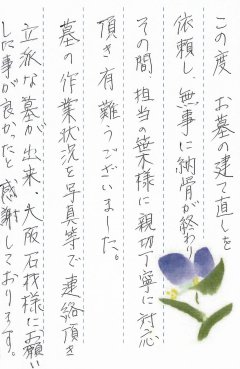 この度 お墓の建て直しを
依頼し 無事に納骨が終わり
その間 担当の葉様に親切丁寧に対応
頂き有難うございました。
墓の作業状況を写真等で連絡頂き
立派な墓が出来、大阪石材様にお願い
した事が良かったと感謝しております。